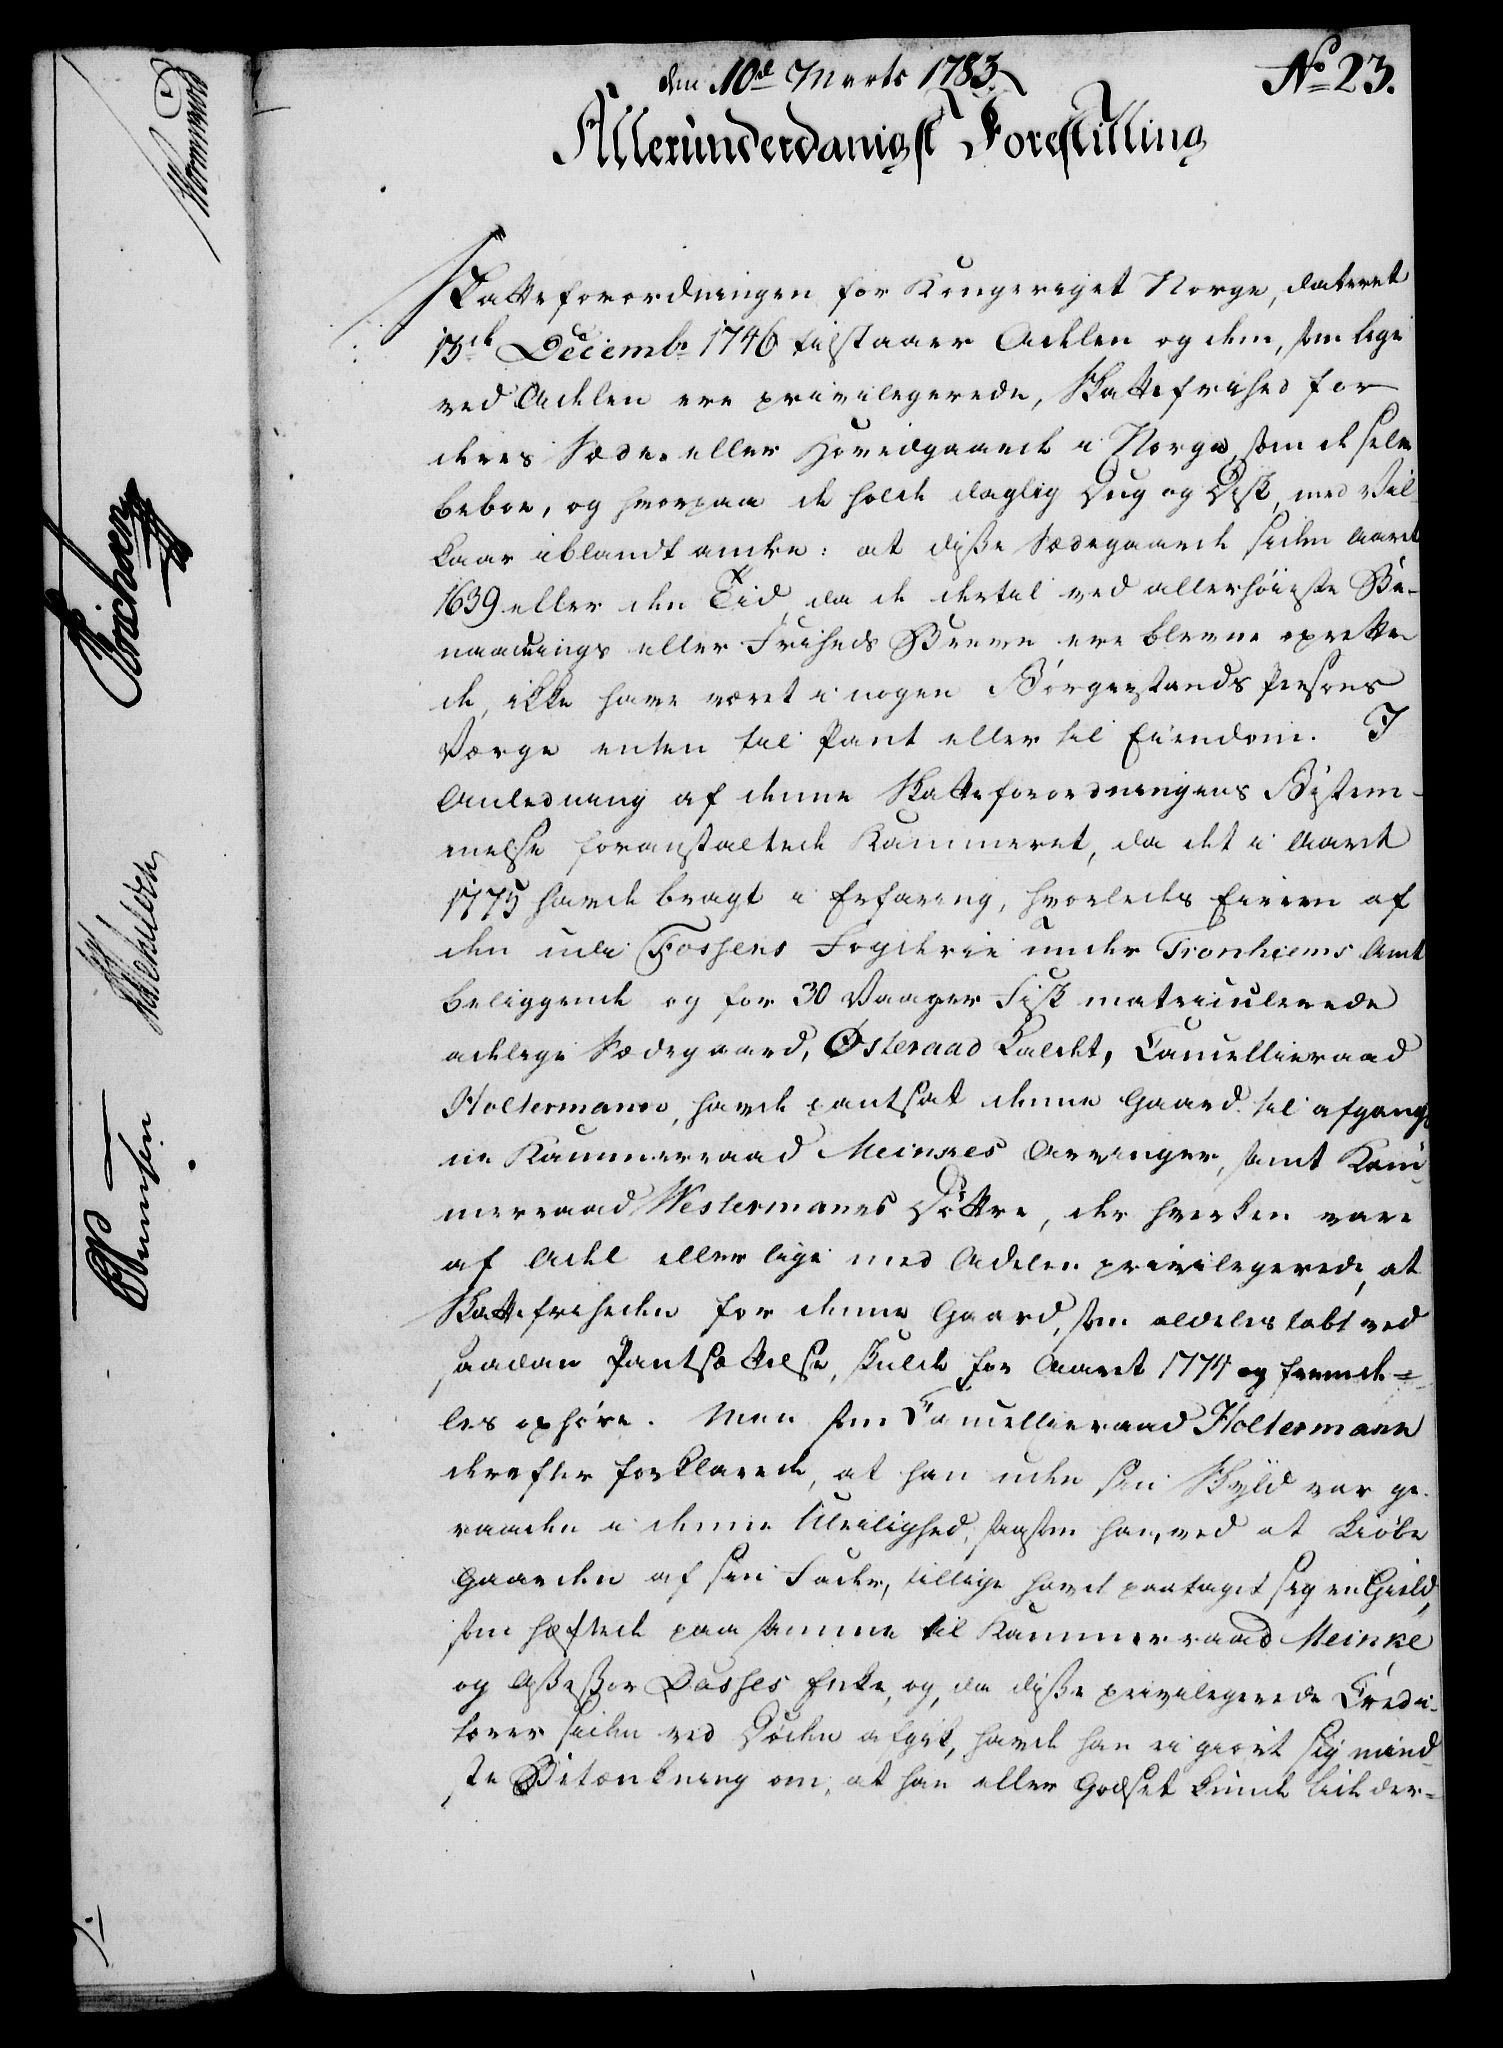 den 10de Marts 1783.
No 23.
Allerunderdanigst Forestilling
Skatteforordningen for Kongeriget Norge, dateret
13de Decembr 1746 tilstaaer Adelen og dem, som lige
ved Adelen ere privilegerede, Skattefrihed for
deres Sæde- eller Hovedgaarde i Norge, som de selv
beboe, og hvorpaa de holde daglig Dug og Disk, med Vil-
kaar iblandt andre: at disse Sædegaarde siden Aaret
1639 eller den Tid, da de dertil ved allerhøieste Be-
naadnings eller Friheds Breve ere blevne oprette-
de, ikke have været i nogen Borgerstands Persons
Værge enten til Pant eller til Eiendom. I
Anledning af denne Skatteforordningens Bestem-
melse foranstaltede Kammeret, da det i Aaret
1775 havde bragt i Erfaring, hvorledes Eieren af
den udi Fossens Fogderie under Tronhiems Amt
beliggende og for 30 Vaager Fisk matriculerede
adelige Sædegaard, Østeraad kaldet, Cancellieraad
Holtermann, havde pantsat denne Gaard til afgang-
ne Kammerraad Meinkes Arvinger, samt Kam-
merraad Westermanns Døttre, der hverken vare
af Adel eller lige med Adelen privilegerede, at
Skattefriheden for denne Gaard, som aldeles tabt ved
saadan Pantsættelse, skulde for Aaret 1774 og fremde-
les ophøre. Men som Cancellieraad Holtermann
derefter forklarede, at han uden sin Skyld var ge-
raaden i denne Uleilighed, saasom han, ved at kiøbe
Gaarden af sin Fader, tillige havde paataget sig en Gield,
som hæftede paa samme til Kammerraad Meinke
og Assessor Dasses Enke, og, da disse privilegerede Credi-
torer siden ved Døden afgik, havde han ei giort sig mind-
ste Betænkning om, at han eller Godset kunde lide der-